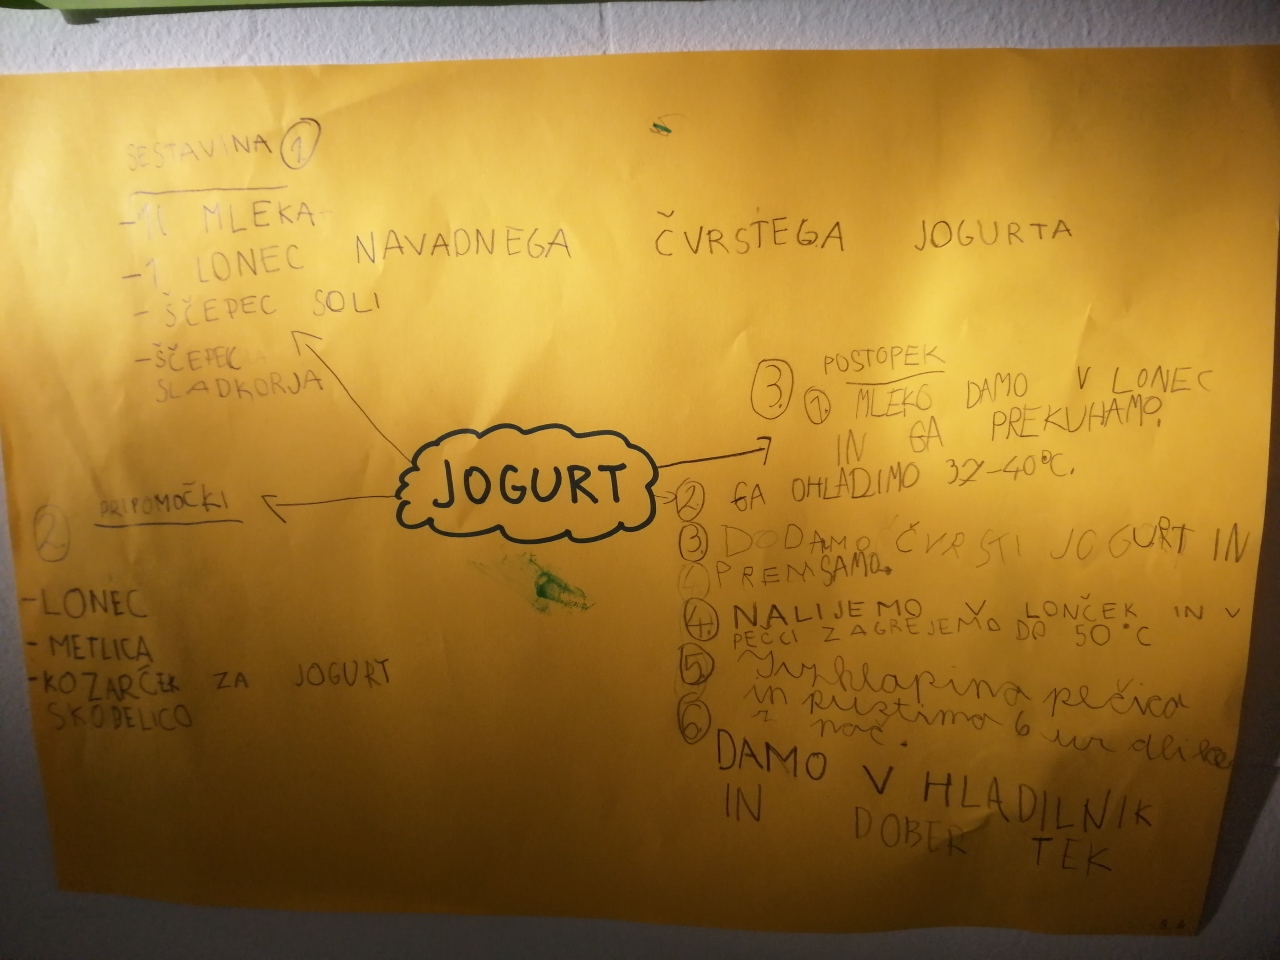 SESTAVINA 1
-1l MLEKA
-1 LONEC NAVADNEGA ČVRSTEGA JOGURTA
- ŠČEPEC SOLI
-ŠČEPEC
SLADKORJA
JOGURT
2 PRIPOMOČKI
-LONEC
- METLICA
-KOZARČEK ZA JOGURT
SKODELICO
3. POSTOPEK
1. MLEKO DAMO V LONEC
IN GA PREKUHAMO.
2 GA OHLADIMO 37-40°C.
3 DODAMO ČVRSTI JOGURT IN
PREMSAMO.
4. NALIJEMO V LONČEK IN V
PEČCI ZAGREJEMO DO 50°C
5 pečica
in 6 ur
noč.
6 DAMO V HLADILNIK
IN DOBER TEK